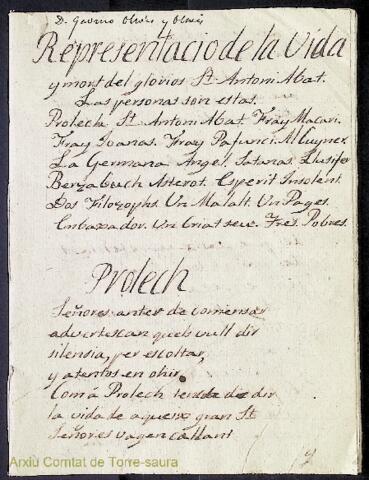 Representacio de la Vida
y mort del glorios St. Antoni Abat.
Las personas son estas.
Prolech. St. Antoni Abat. Fray Macari.
Fray Joanas. Fray Pafunci. Al Cuyner.
La Germana. Angel. Satanas. Llusifer
Berzabuch Asterot. Esperit Insolent.
Dos Filozophs. Un Malalt. Un Pages.
Embaxador. Un Criat seu. Tres Pobres.
Prolech
Señores antes de comensar
advertescan quels vull dir
silensia, per escoltar,
y atentos en ohir.
Com á Prolech de dir
la vida de aqueix gran St.
Señores vagen callant
y
Arxiu Comtat de Torre-saura